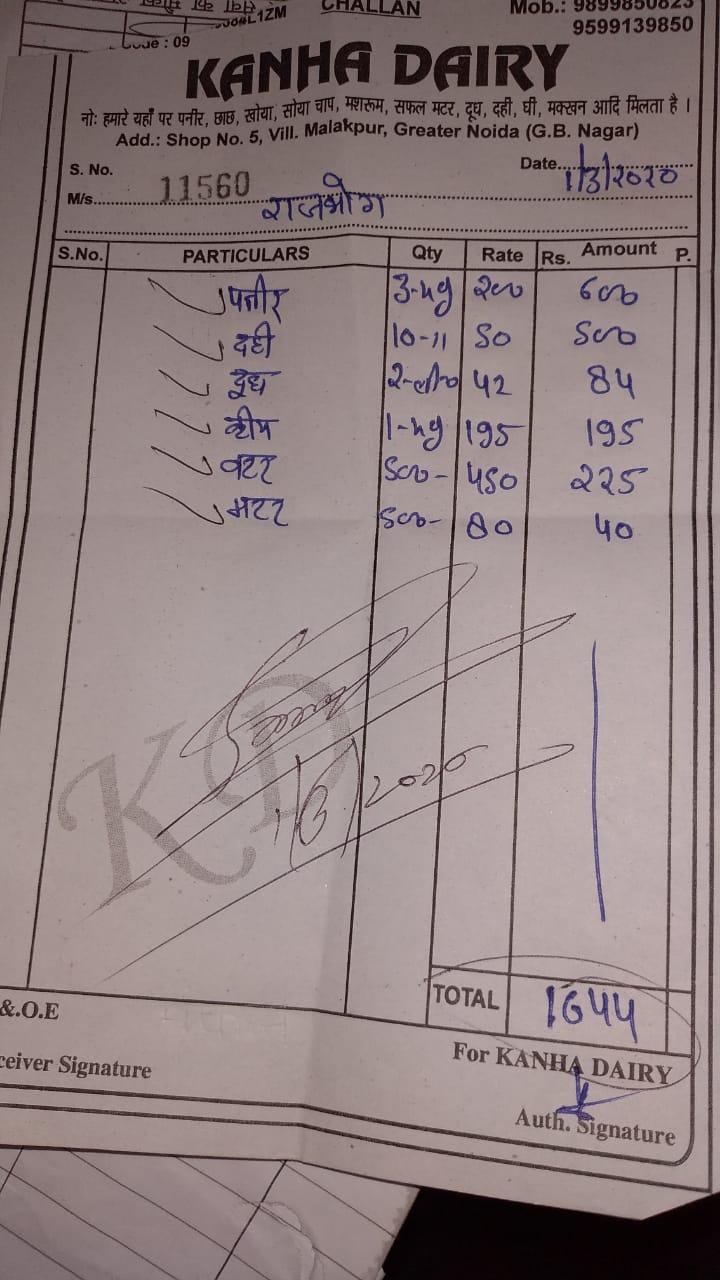 CHALLAN
Mob.: 9899850823
9599139850
Code : 09
KANHA DAIRY
नोः हमारे यहाँ पर पनीर, छाछ, खोया, सोया चाप, मशरूम, सफल मटर, दूध, दही, घी, मक्खन आदि मिलता है ।
Add.: Shop No. 5, Vill. Malakpur, Greater Noida (G.B. Nagar)
S. No. 11560 Date 1/3/2020
M/s. राजभोग
S.No. PARTICULARS Qty Rate Rs. Amount P.
पनीर 3-kg 200 600
दही 10-11 50 500
दूध 2-ली० 42 84
क्रीम 1-kg 195 195
बटर 500- 450 225
मटर 500- 80 40
KD
1/3/2020
TOTAL 1644
&.O.E
For KANHA DAIRY
ceiver Signature
Auth. Signature